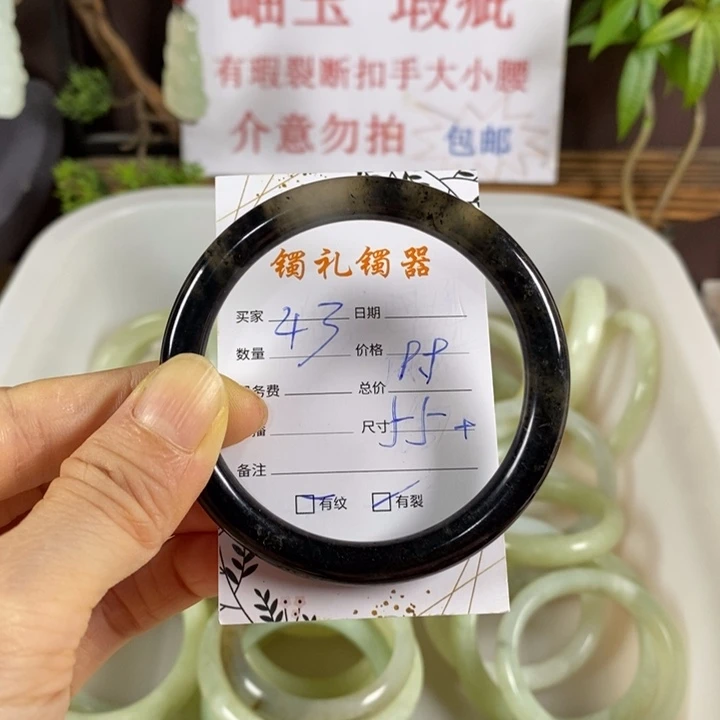 岫玉 瑕疵
有瑕裂断扣手大小腰
介意勿拍 包邮
镯礼镯器
买家 43 日期
数量 价格
务费 总价
尺寸 55+
备注
有纹 有裂